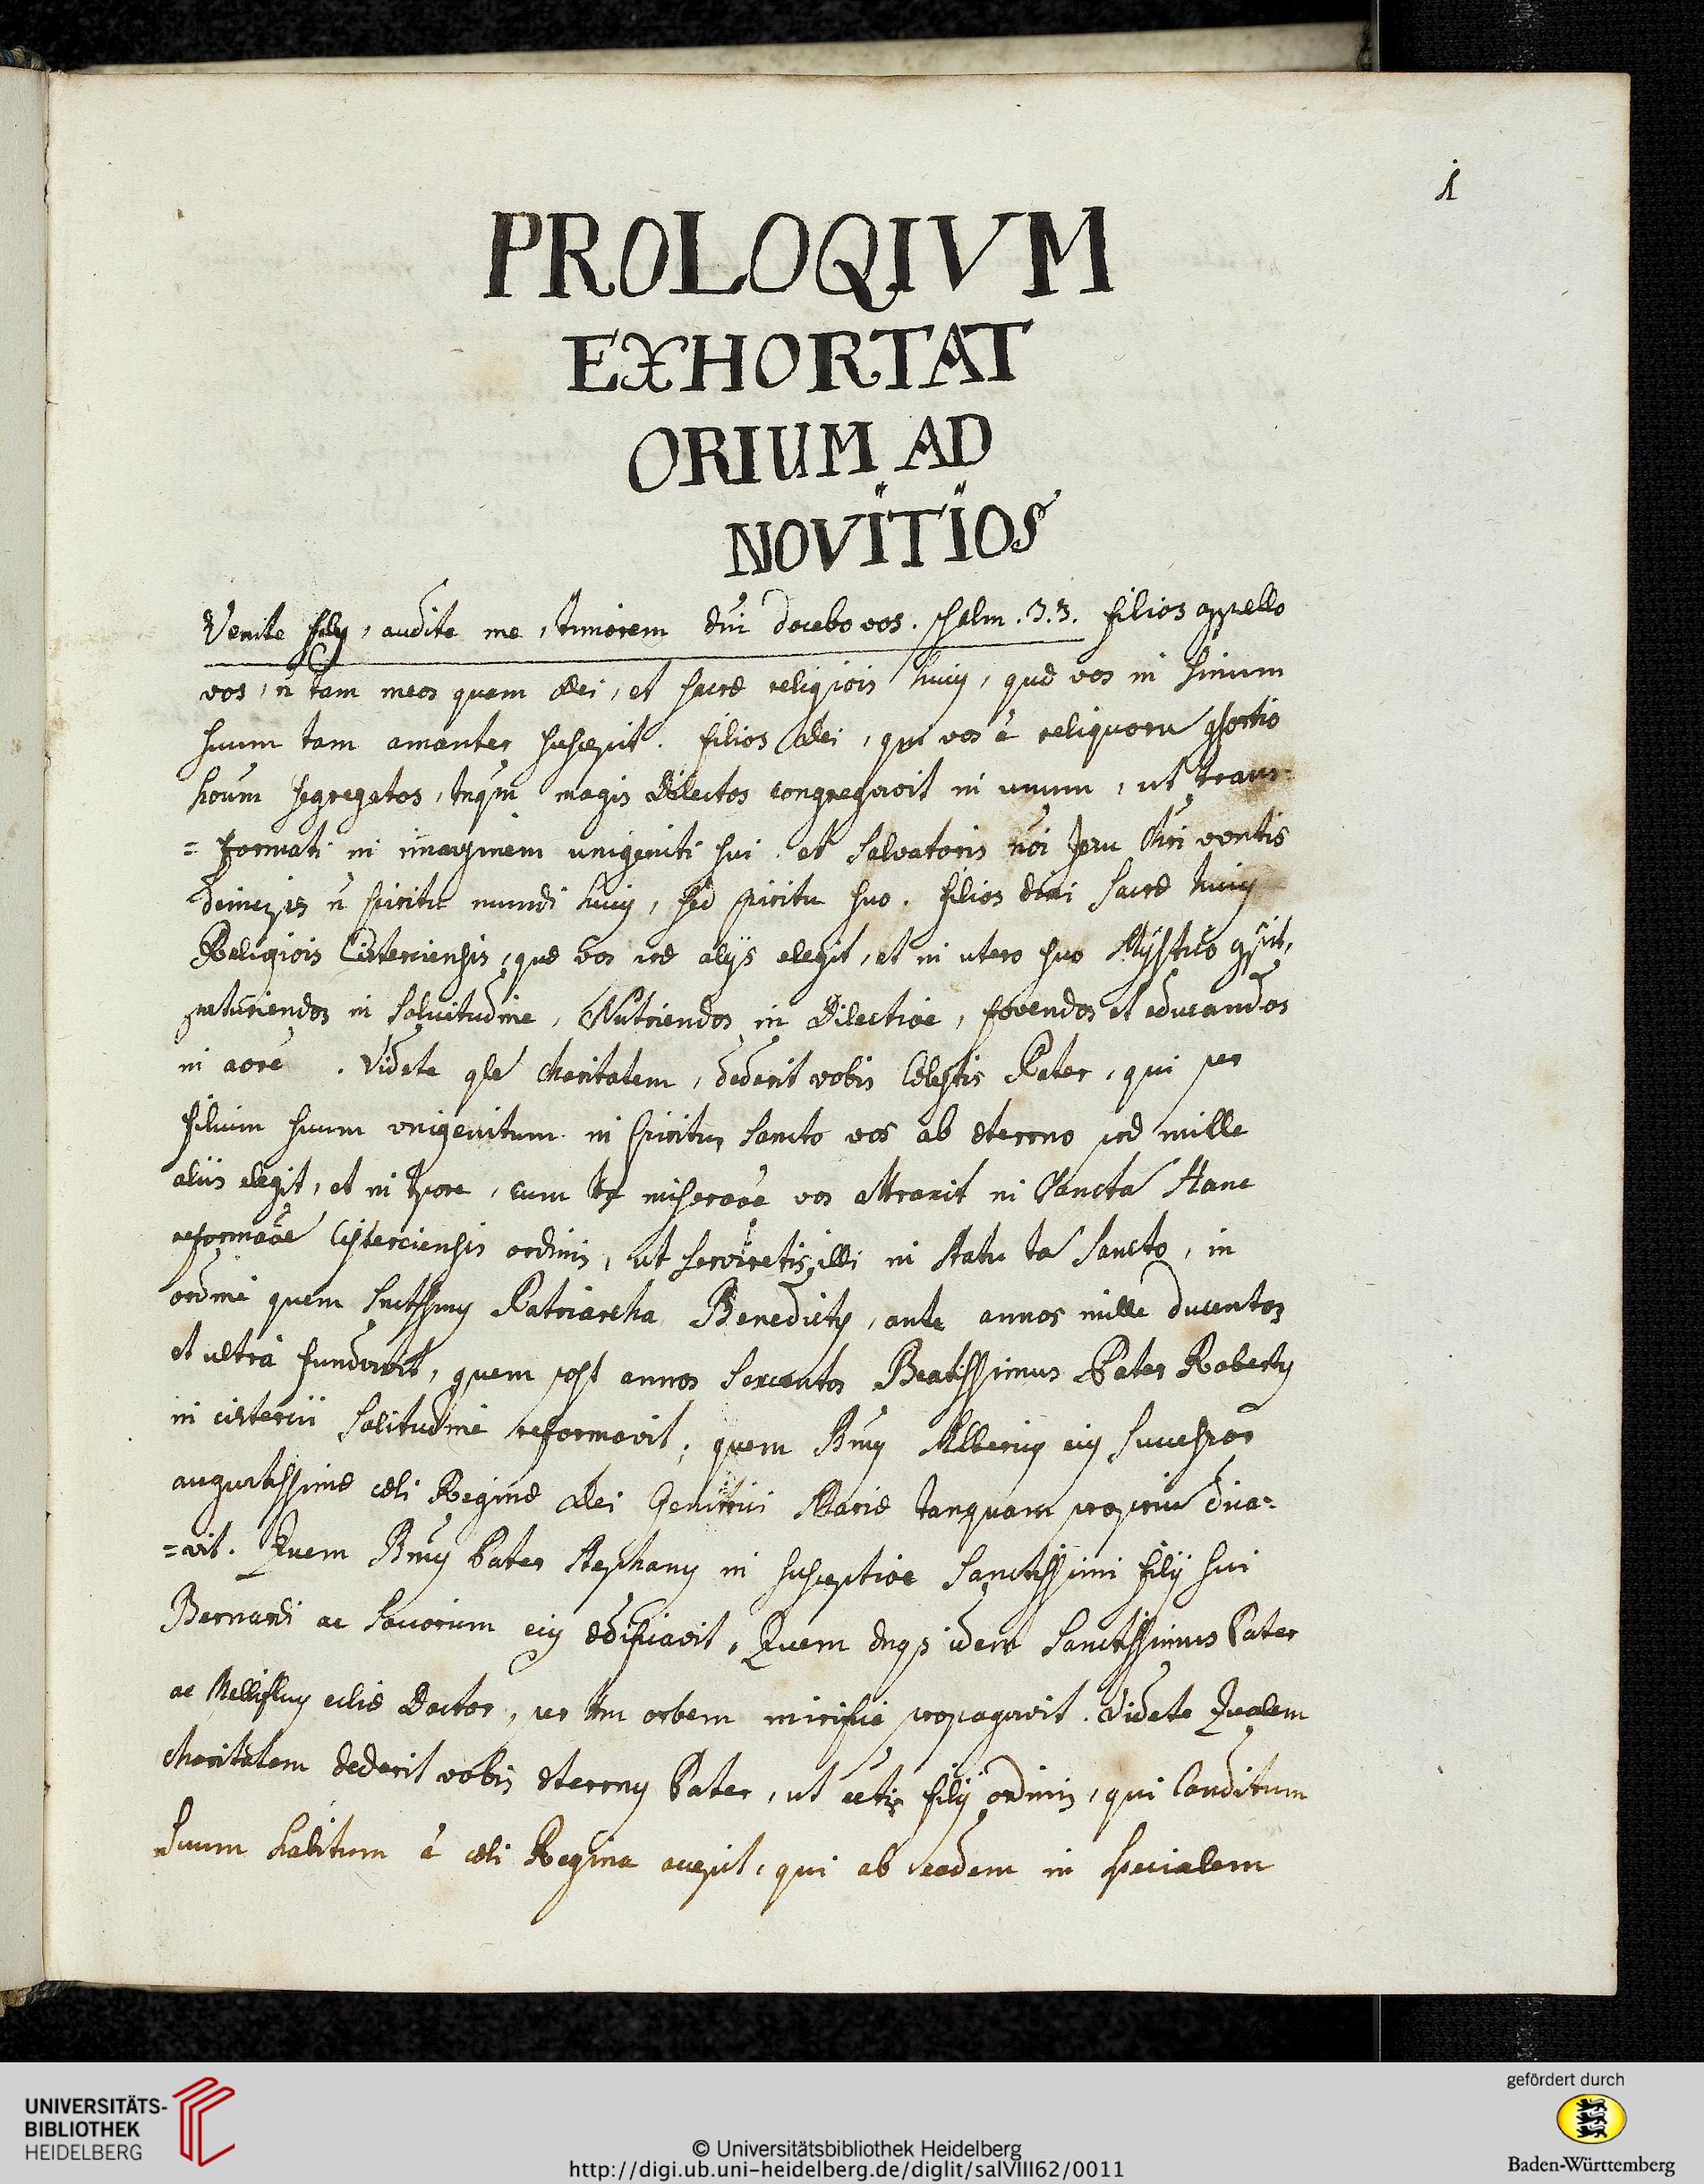 1
PROLOQIVM
EXHORTAT
ORIUM AD
NOVÏTÏOS
Venite filij, audite me, timorem dni docebo vos. psalm. 33. filios appello
vos, n tam meos quam Dei, et sacrę religiois huius, quę vos in sinum
suum tam amanter suscepit. filios Dei, qui vos à reliquoru consortio
hoium segregatos, tnqm magis dilectos congregavit in unum, ut trans-
= formati in imaginem unigeniti sui et Salvatoris nri Jesu Chri
n spiritu mundi huius, sed spiritu suo. filios sacrę huius
Religiois Cisterciensis, quę vos prę alijs elegit, et in utero suo Mystico
parturiendos in solicitudine, Nutriendos in Dilectioe, fovendos et educandos
in aore. Videte qle charitatem, dederit vobis Cęlestis Pater, qui per
filium suum unigenitum in Spiritu Sancto vos ab ęterno prę mille
aliis elegit, et in tpore, cum miseraoe vos attraxit in Sancta Hanc
reformaoe Cisterciensis ordinis, ut serviretis illi in statu ta Sancto, in
ordine quem Snctssmus Patriarcha Benedictus, ante annos mille ducentos
et ultrà fundavit, quem post annos sexcentos Beatissimus Pater Robertus
in cistercii solitudine reformavit, quem Bmus Albericus eius successor
augustissimę cęli Reginę Dei Genitrici Marię tanquam propriu dica=
=vit. Quem Bmus Pater Stephanus in susceptioe Sanctissimi filij sui
Bernardi ac Sociorum eius ędificavit, Quem idem Sanctissimus Pater
ac Mellifluus eclię Doctor, per tm orbem mirificè propagavit. Videte Qualem
charitatem dederit vobis ęternus Pater, ut filij ordinis, qui Canditum
suum habitum à cęli Regina accepit, qui ab eadem in specialem
UNIVERSITÄTS-
BIBLIOTHEK
HEIDELBERG
© Universitätsbibliothek Heidelberg
http://digi.ub.uni-heidelberg.de/diglit/salVIII62/0011
gefördert durch
Baden-Württemberg